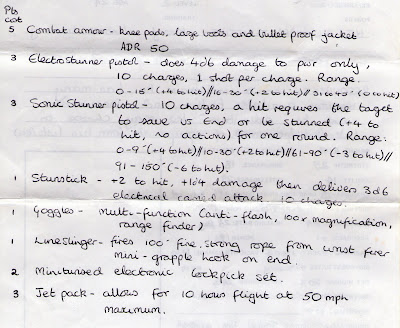 Pts
cot
5 Combat armour - knee pads, large boots and bullet proof jacket
ADR 50
3 Electrostunner pistol - does 4d6 damage to pwr only,
10 charges, 1 shot per charge. Range:
0-15" (+4 to hit)//16-30" (+2 to hit)//31 to 40" (0 to hit)
3 Sonic Stunner pistol - 10 charges, a hit requires the target
to save vs End or be stunned (+4 to
hit, no actions) for one round. Range:
0-9" (+4 to hit)//10-30" (+2 to hit)//61-90" (-3 to hit)//
91-150" (-6 to hit).
1 Stunstick - +2 to hit, +1d4 damage then delivers 3d6
electrical attack. 10 charges.
1 Goggles - Multi-function (anti-flash, 100x magnification,
range finder)
1 Lineslinger - fires 100' fine, strong rope from wrist firer
mini-grapple hook on end.
2 Minitursed electronic lockpick set.
3 Jet pack - allows for 10 hours flight at 50 mph
maximum.